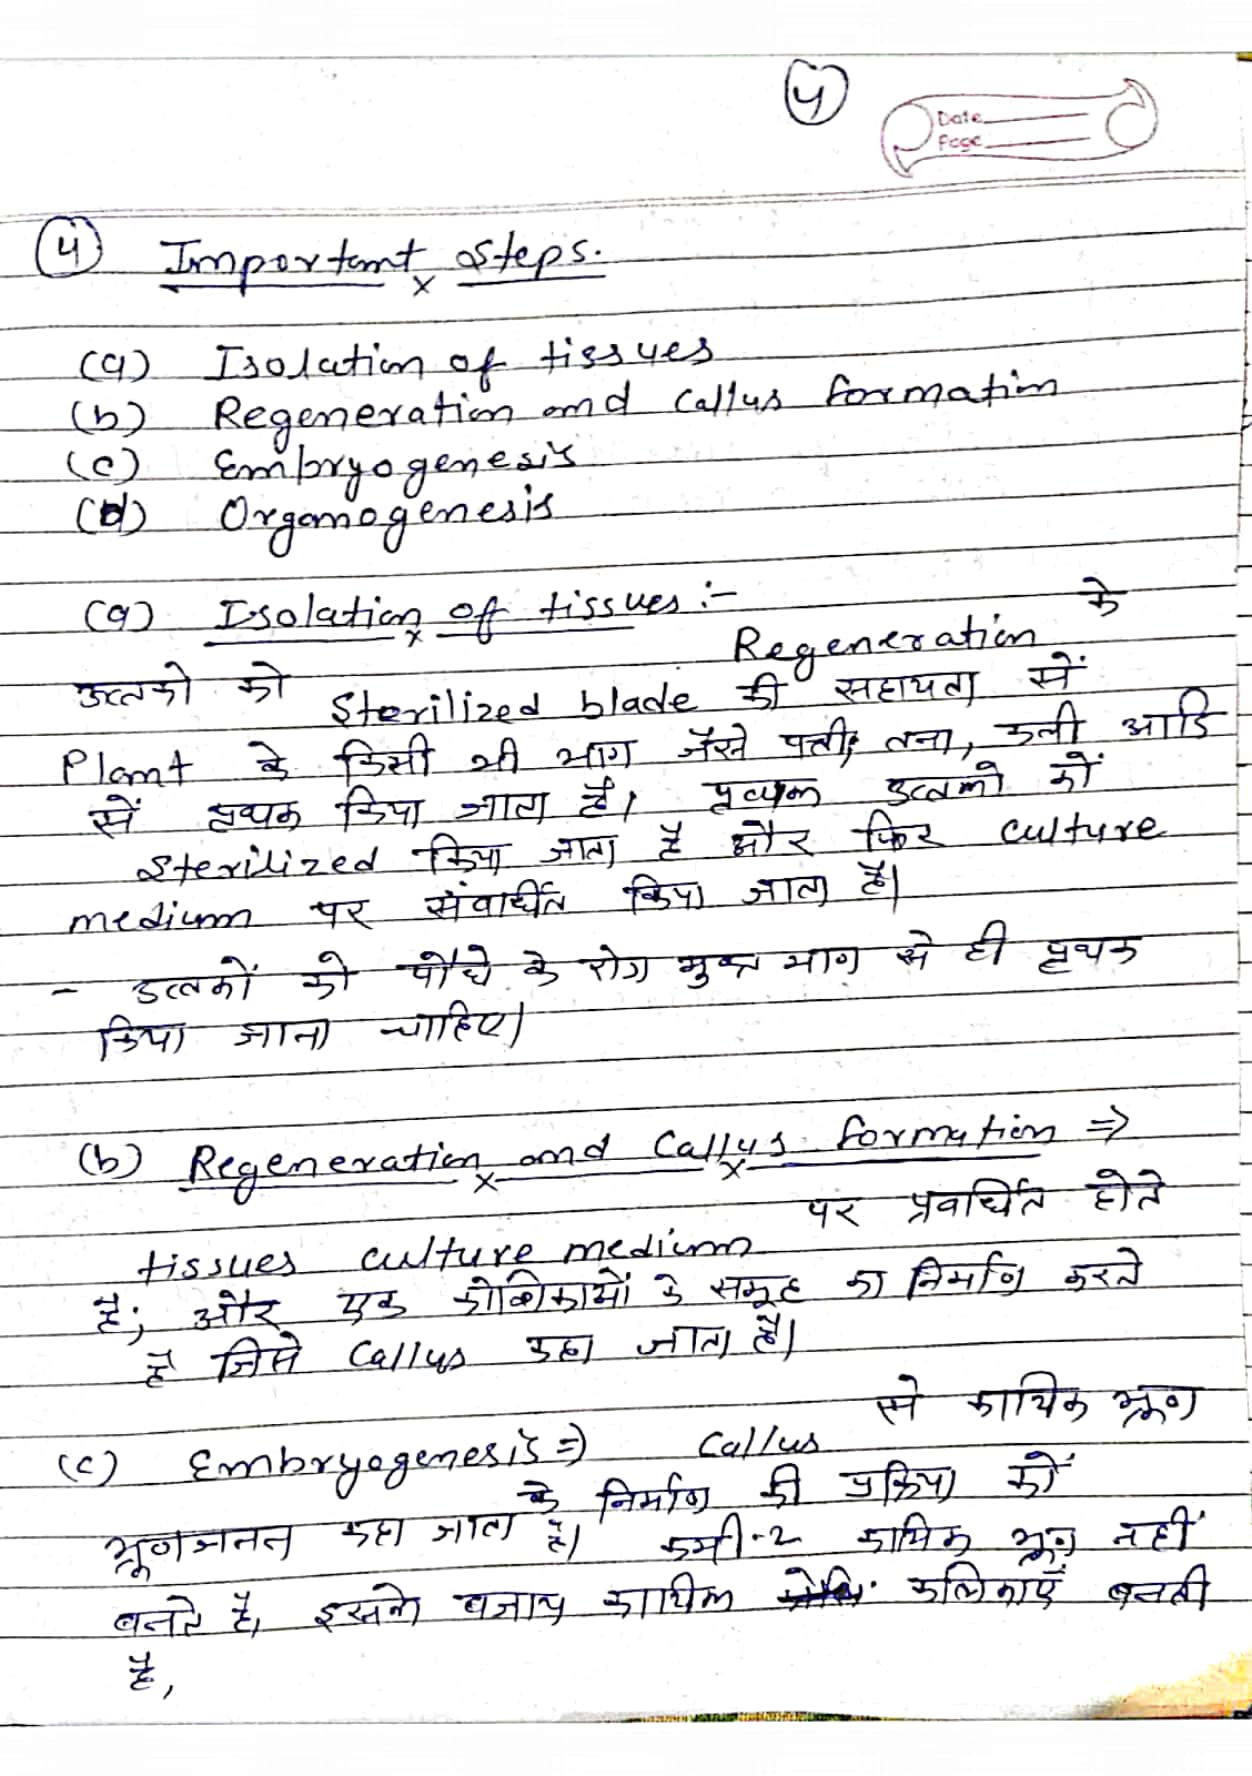 4
Date
Page
4 Important Steps.
(a) Isolation of tissues
(b) Regeneration and Callus formation
(c) Embryogenesis
(d) Organogenesis
(a) Isolation of tissues :-
Regeneration के
उत्तको को Sterilized blade की सहायता सें
Plant के किसी भी भाग जैसे पत्ती, तना, कली आदि
सें पृथक किया जाता है। पृथक उत्तको कों
Sterilized किया जाता है और फिर culture
medium पर संवर्धित किया जाता है।
- उत्तकों को पौधे के रोग मुक्त भाग से ही पृथक
किया जाना चाहिए।
(b) Regeneration and Callus formation ⇒
tissues culture medium पर प्रवर्धित होते
है; और एक कोशिकाओं के समूह का निर्माण करते
है जिसे Callus कहा जाता है।
(c) Embryogenesis ⇒ Callus से कायिक भ्रूण
के निर्माण की प्रक्रिया कों
भ्रूणजनन कहा जाता है। कभी-2 कायिक भ्रूण नहीं
बनते है, इसके बजाय कायिक कलिकाएँ बनती
है,